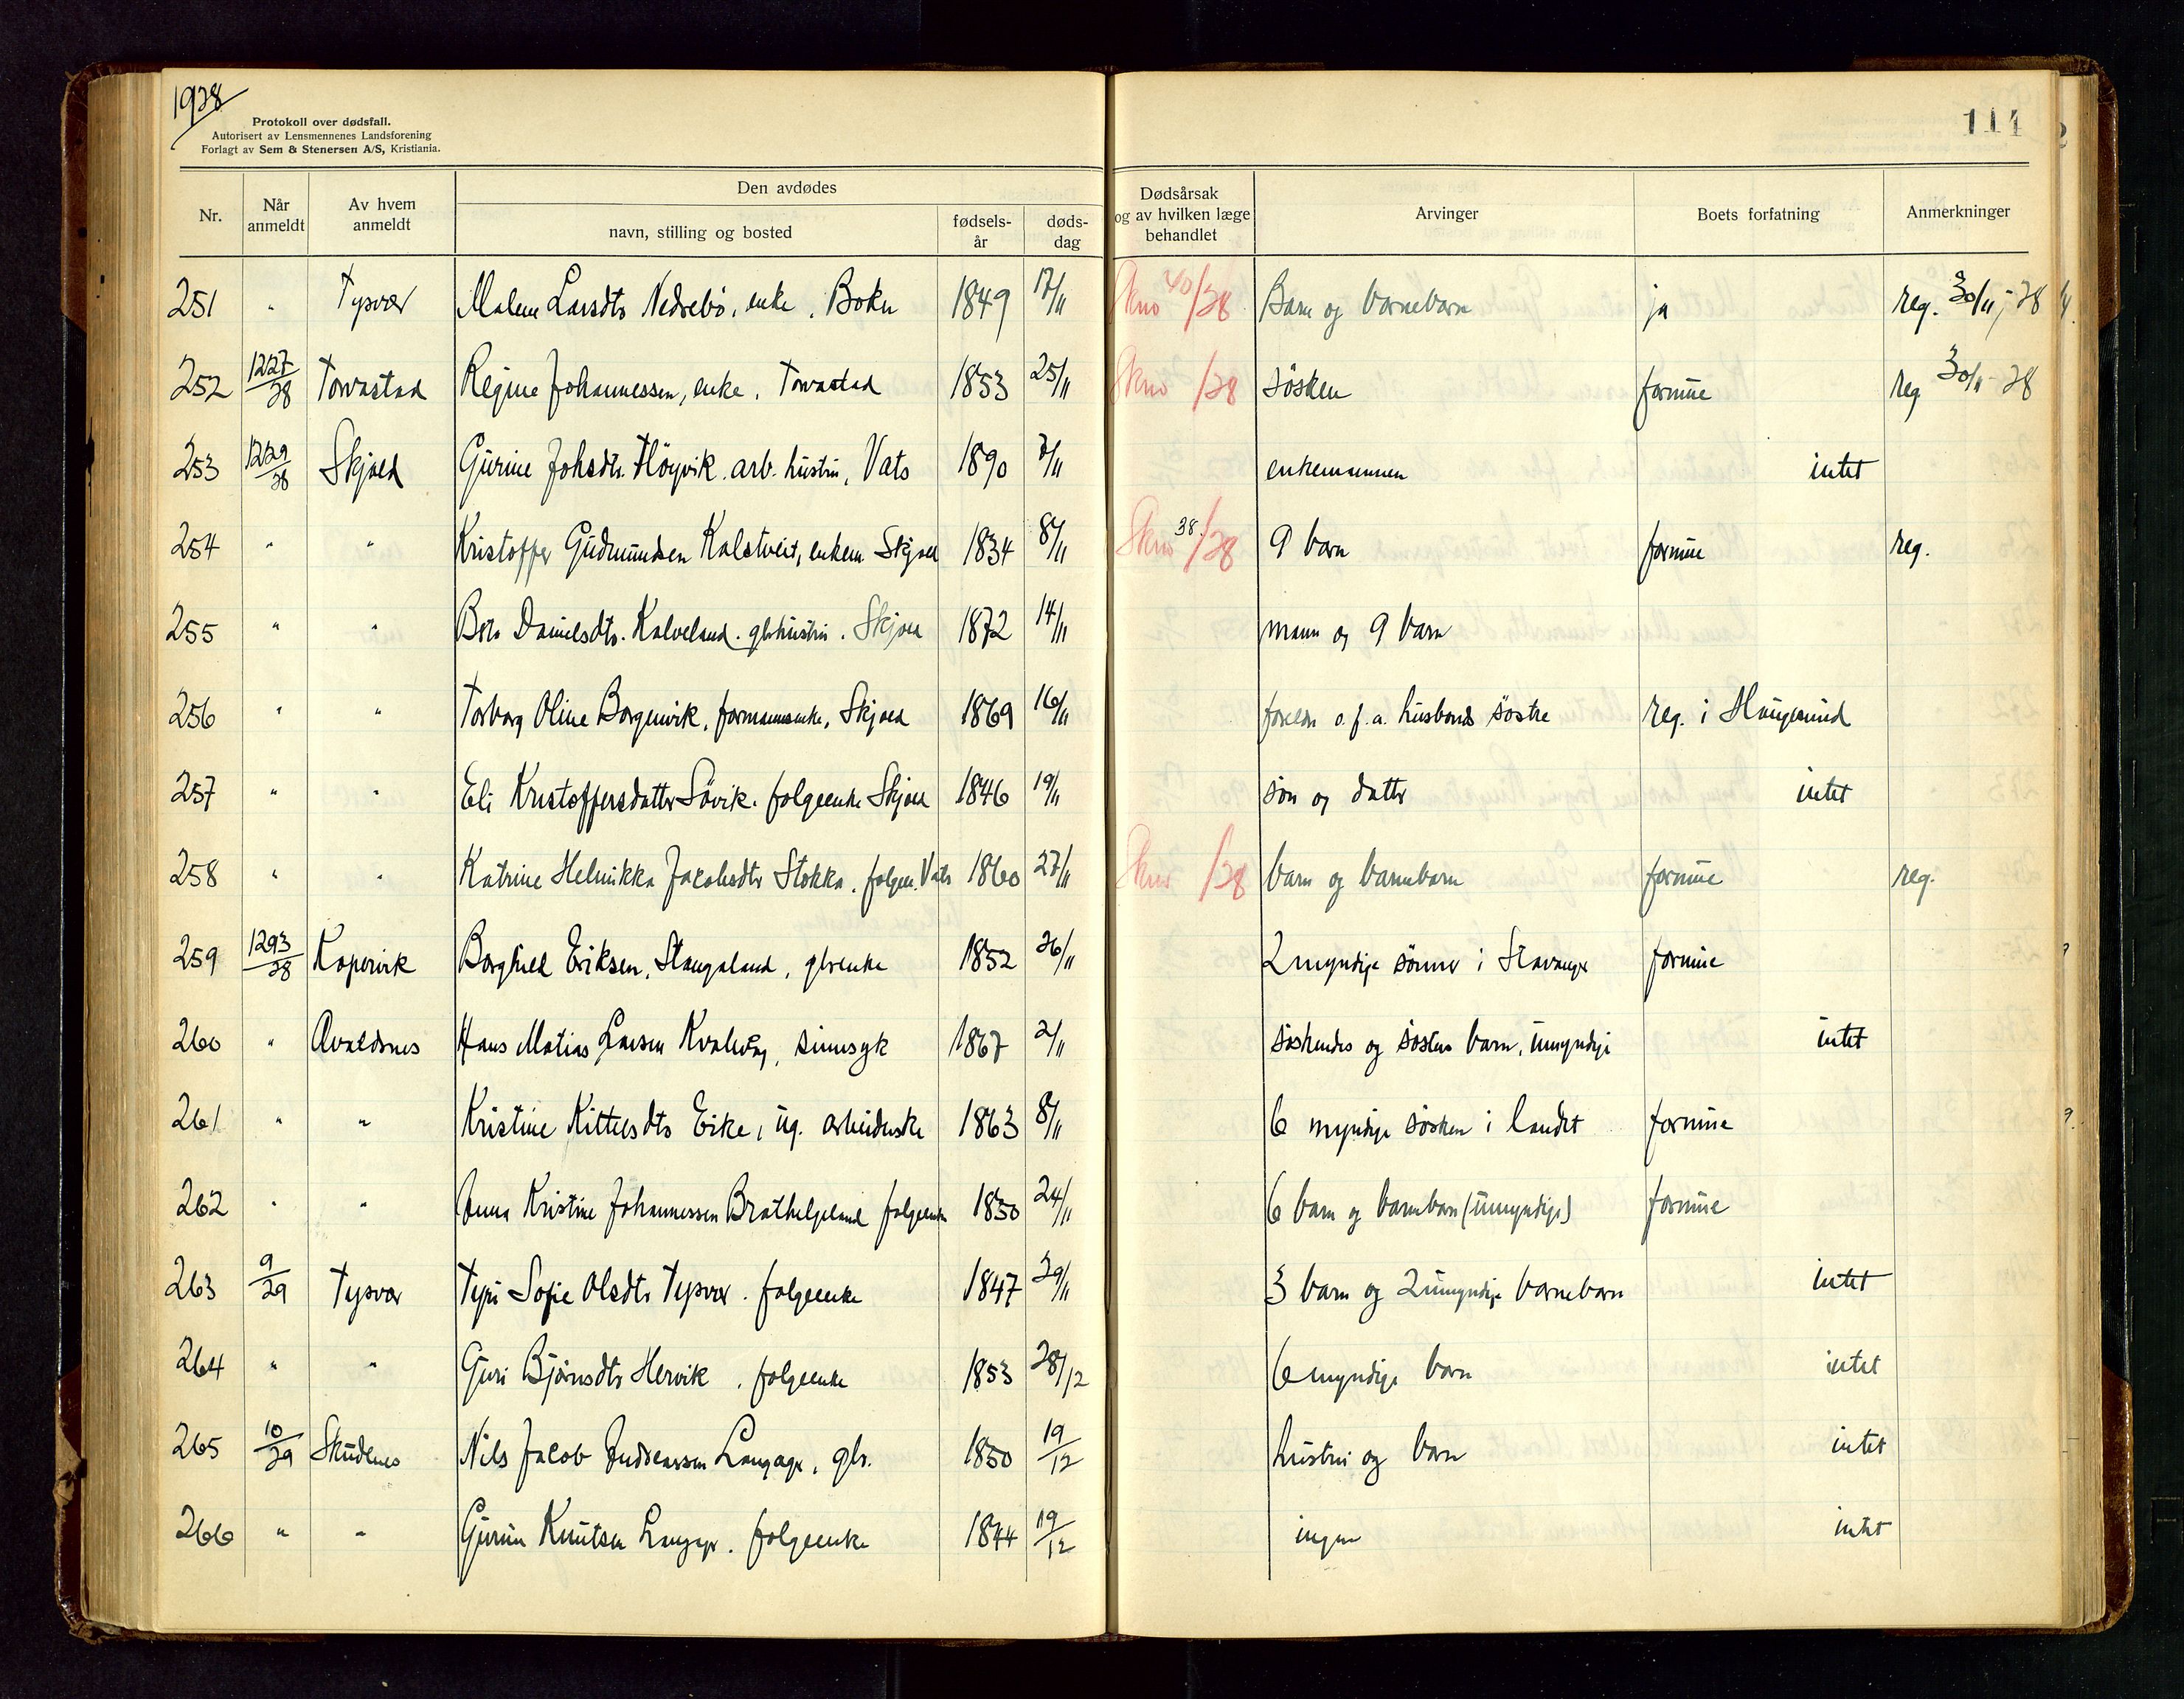 1928
Protokoll over dødsfall.
Autorisert av Lensmennenes Landsforening
Forlagt av Sem & Stenersen A/S, Kristiania.
114
Nr. Når anmeldt Av hvem anmeldt Den avdødes navn, stilling og bosted fødsels-år døds-dag Dødsårsak og av hvilken læge behandlet Arvinger Boets forfatning Anmerkninger
251 " Tysvær Malene Larsdtr Nedrebö, enke, Bokn 1849 17/11 Skno 40/28 Barn og barnebarn ja reg. 30/11-28
252 1227/28 Torvastad Regine Johannessen, enke, Torvastad 1853 25/11 Skno /28 søsken formue reg 30/11-28
253 1229/28 Skjold Gurine Johsdtr. Høyvik. arb. hustru, Vats 1890 3/11 enkemannen intet
254 " " Kristoffer Gudmundsen Kalstveit, enkem. Skjold 1834 8/11 Skno 38/28 9 barn formue reg.
255 " " Berta Danielsdtr. Kalveland. gbrhustru. Skjold 1872 14/11 mann og 9 barn
256 " " Torborg Oline Borgenvik, formannsenke, Skjold 1869 16/11 foreldr o. f. a. husbonds søstre reg. i Haugesund
257 " " Eli Kristoffersdatter Søvik. folgeenke Skjold 1846 19/11 søn og datter intet
258 " " Katrine Helmikka Jacobsdtr Stokka. folgee. Vats 1860 27/11 Skno /28 barn og barnebarn formue reg.
259 1293/28 Kopervik Borghild Eriksen, Stangaland, gbrenke 1852 26/11 2 myndige sønner i Stavanger formue
260 " Avaldsnes Hans Matias Larsen Kvalvåg, sinnsyk 1867 2/11 søskendes og søsters barn, umyndige intet
261 " " Kristine Kittelsdtr Eike, ug. arbeiderske 1863 8/11 6 myndige søsken i landet formue
262 " " Anna Kristine Johannessen Bratthelgeland folgeenke 1850 24/11 6 barn og barnebarn (umyndige) formue
263 9/29 Tysvær Sofie Olsdtr Tysvær. folgeenke 1847 29/11 3 barn og 2 umyndige barnebarn intet
264 " " Guri Bjørnsdtr Hervik, folgeenke 1853 28/12 6 myndige barn intet
265 10/29 Skudenes Nils Jacob Andreassen Langåker, gbr. 1850 19/12 hustru og barn intet
266 " " Gurine Knutsen Langåker. folgeenke 1844 19/12 ingen intet